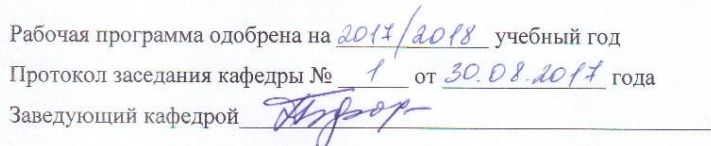 Рабочая программа одобрена на 2017/2018 учебный год
Протокол заседания кафедры № 1 от 30.08.2017 года
Заведующий кафедрой